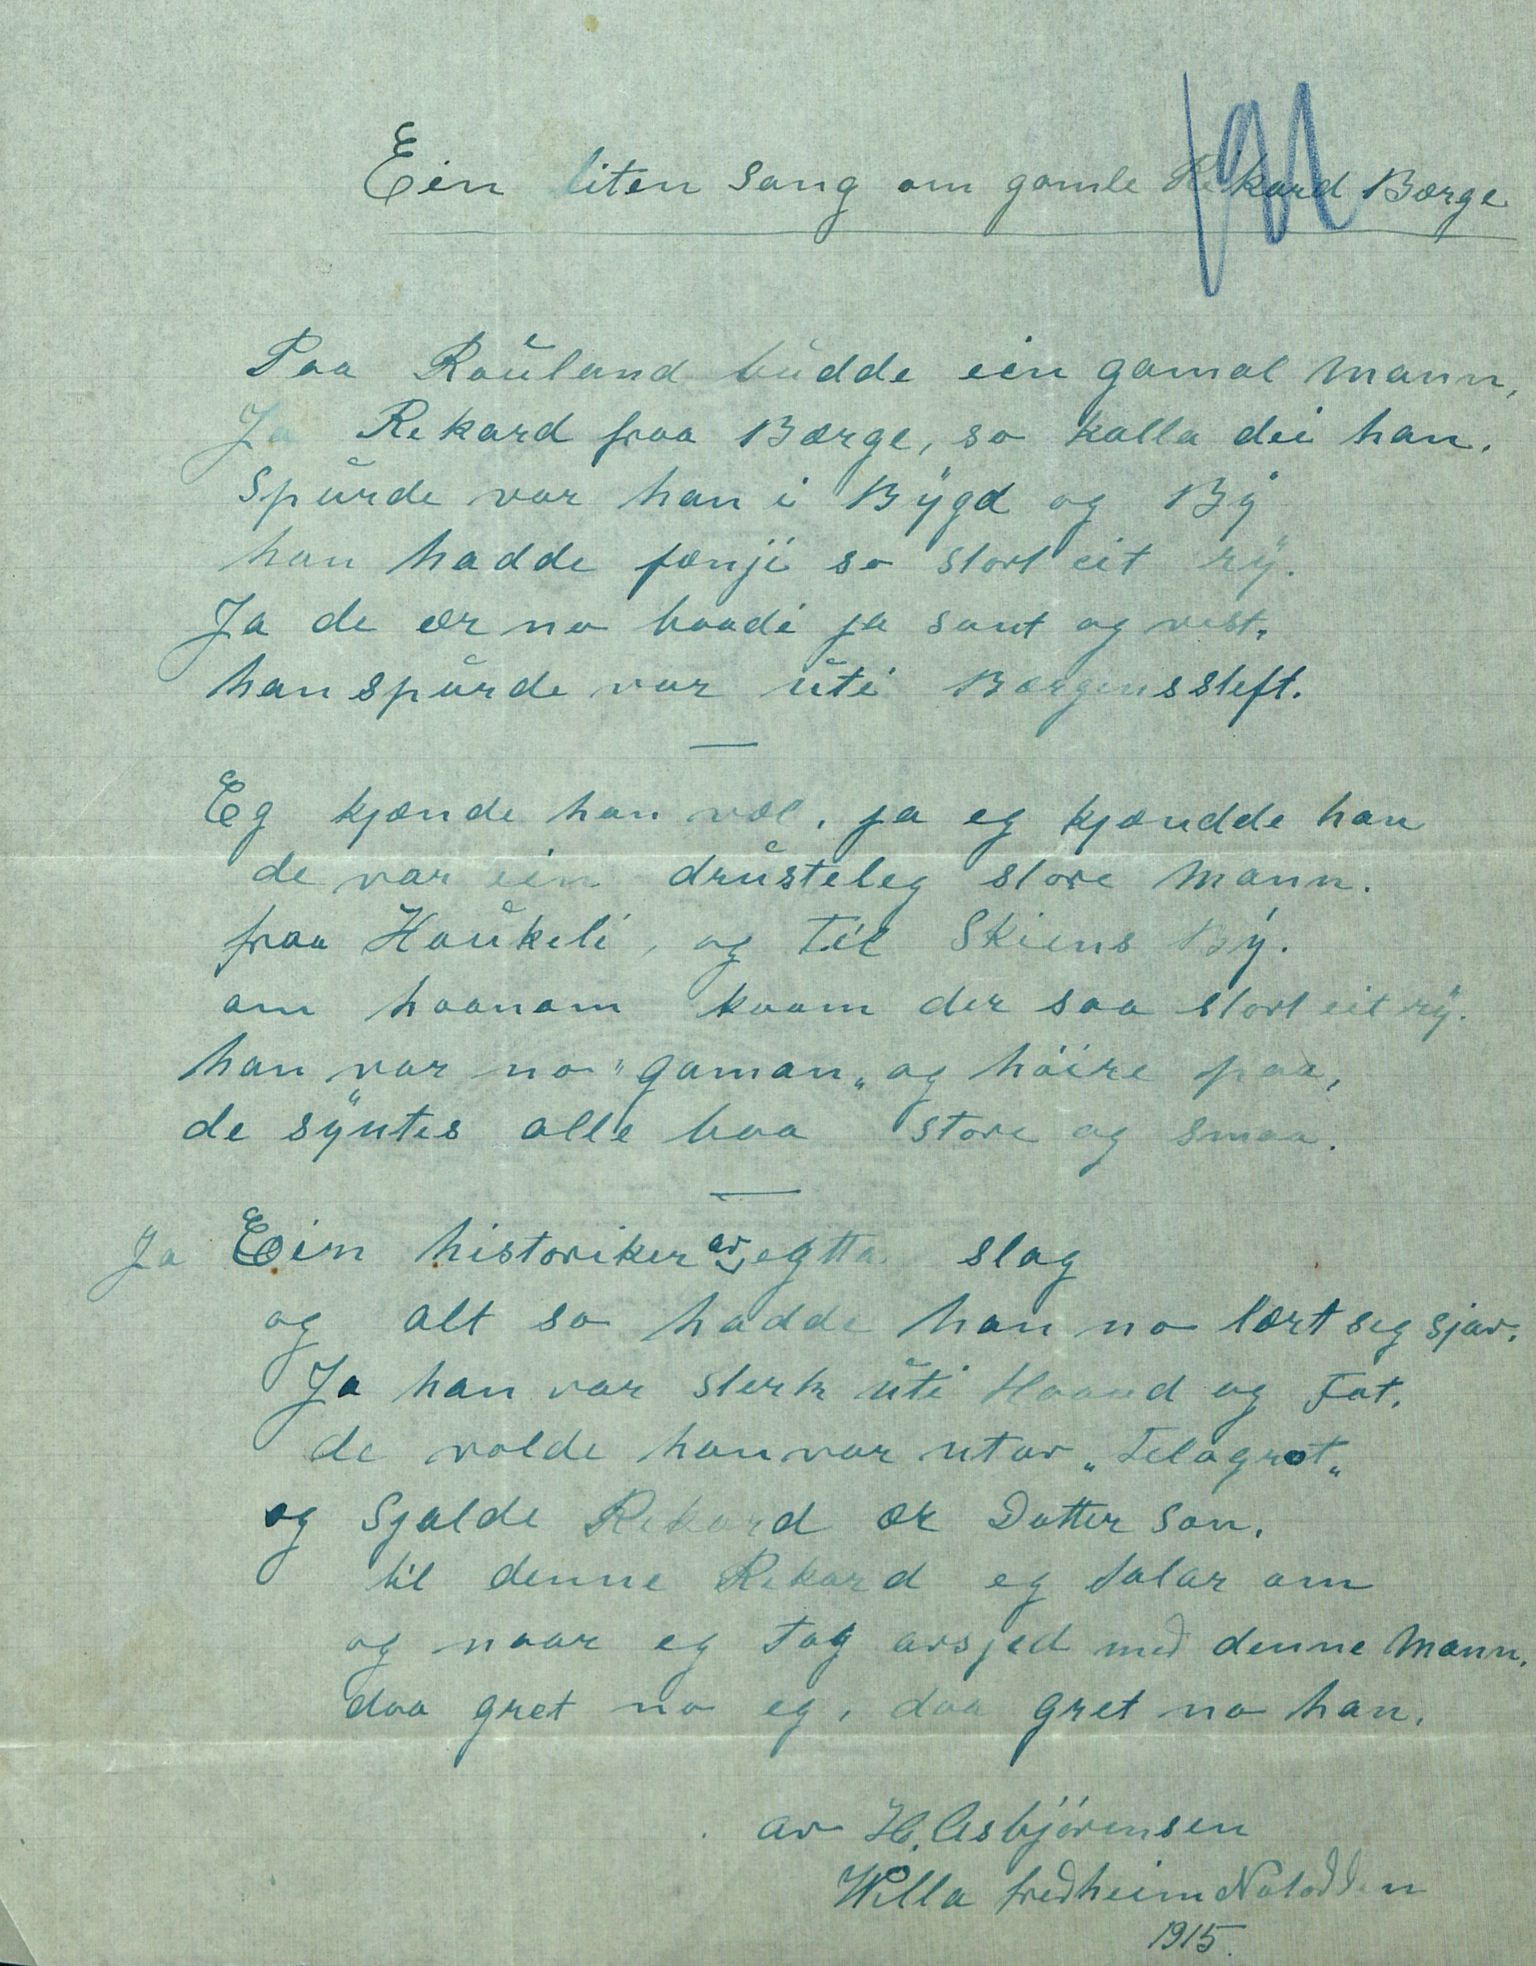 Ein liten sang om gamle Rikard Bærge
Paa Rauland budde ein gamal Mann,
Ja Rekard fraa Bærge, so kalla dei han.
Spurde var han i Bÿgd og Bÿ
han hadde fænji so stort eit rÿ.
Ja de ær no baade ja sant og vest.
han spurde var uti Bærgensstift.
Eg kjænde han væl, ja eg kjændde han
de var ein drusteleg store Mann.
fraa Haukeli, og til Skiens Bÿ.
om haanom kaam der saa stort eit rÿ.
han var no "gaman„ og höire paa,
de sÿntes alle baa store og smaa.
Ja Ein historiker av egtta slag
og alt so hadde han no lært seg sjav.
Ja han var sterk uti Haand og Fot.
de valde han var utav „Telagrot„
og Sjalde Rekard ær Datter son.
til denne Rekard eg talar om
og naar eg tag avsjed med denne Mann.
daa gret no eg, daa gret no han.
av H. Asbjörensen
Willa fredheim Notodden
1915.